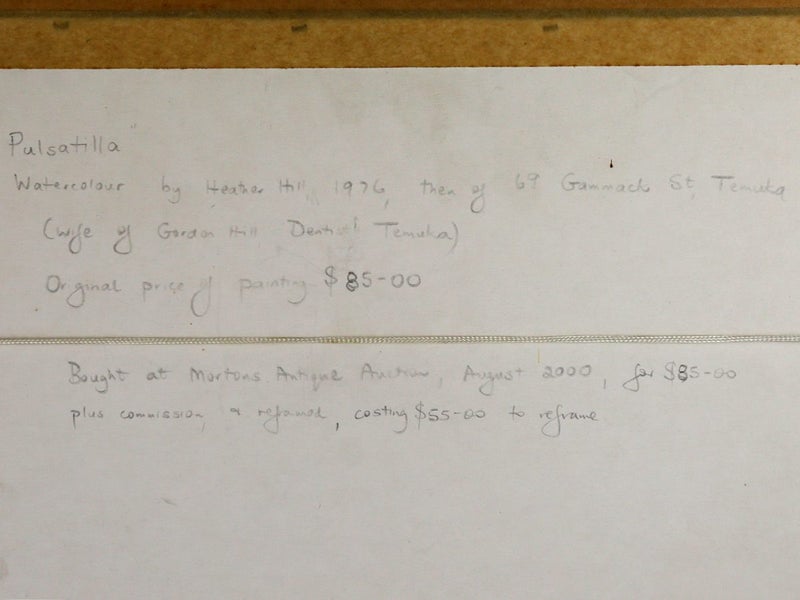 Pulsatilla"
Watercolour by Heather Hill, 1976, then of 69 Gammack St, Temuka
(wife of Gordon Hill Dentist Temuka)
Original price of painting $85-00
Bought at Mortons Antique Auction, August 2000, for $85-00
plus commission, & reframed, costing $55-00 to reframe